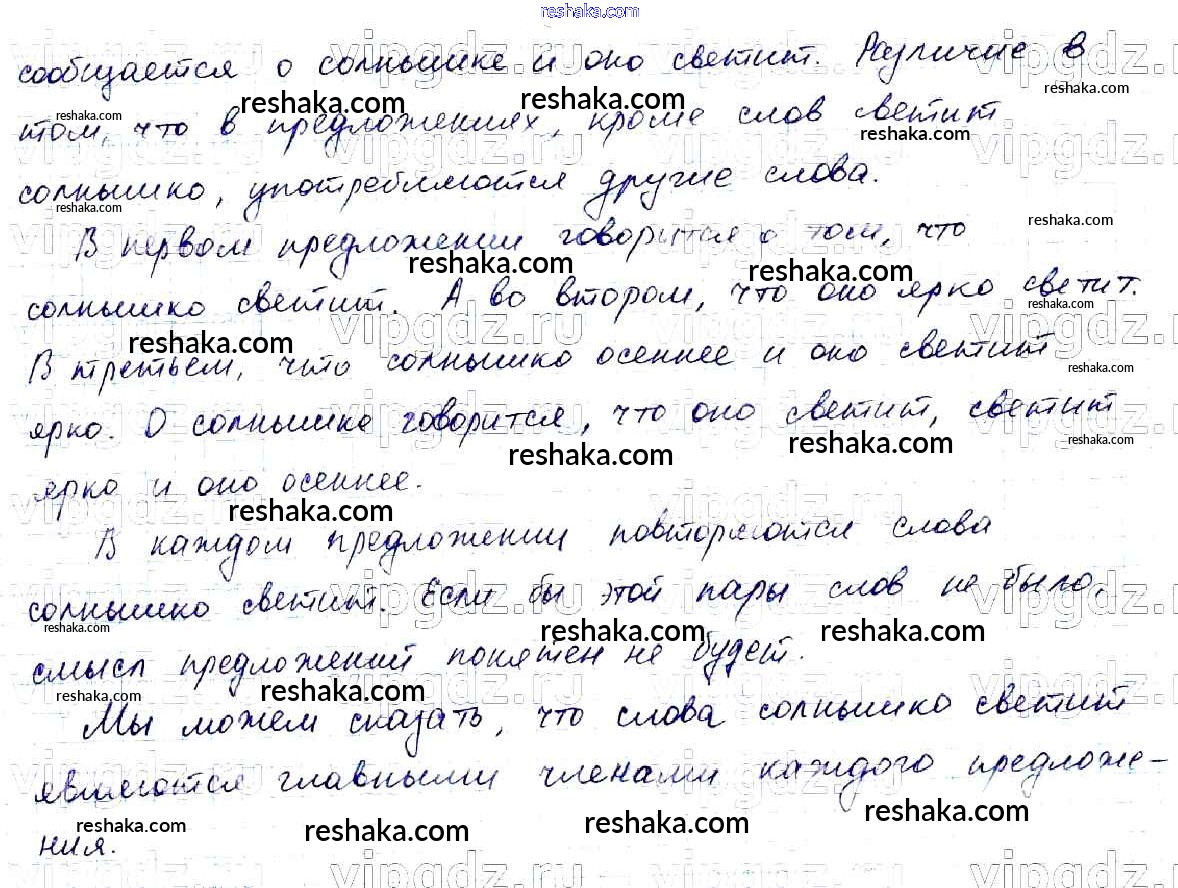 reshaka.com
сообщается о солнышке и оно светит. Различие в
том, что в предложениях, кроме слов светит
солнышко, употребляются другие слова.
В первом предложении говорится о том, что
солнышко светит. А во втором, что оно ярко светит.
В третьем, что солнышко осеннее и оно светит
ярко. О солнышке говорится, что оно светит, светит
ярко и оно осеннее.
В каждом предложении повторяются слова
солнышко светит. Если бы этой пары слов не было,
смысл предложений понятен не будет.
Мы можем сказать, что слова солнышко светит
являются главными членами каждого предложе-
ния.